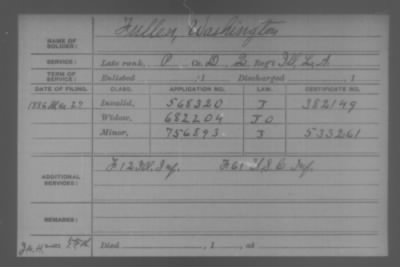 NAME OF SOLDIER: Fullen, Washington
SERVICE: Late rank, P Co. D, 2 Reg't Ill. L. A.
TERM OF SERVICE: Enlisted , 1 Discharged , 1
DATE OF FILING. CLASS. APPLICATION NO. LAW. CERTIFICATE NO.
1886 27 Invalid, 568320 J 382149
Widow, 682204 J O
Minor, 756893 J 533261
ADDITIONAL SERVICES: F 12 Ill. Inf. F 61 U.S.C. Inf.
REMARKS:
Died , 1 , at